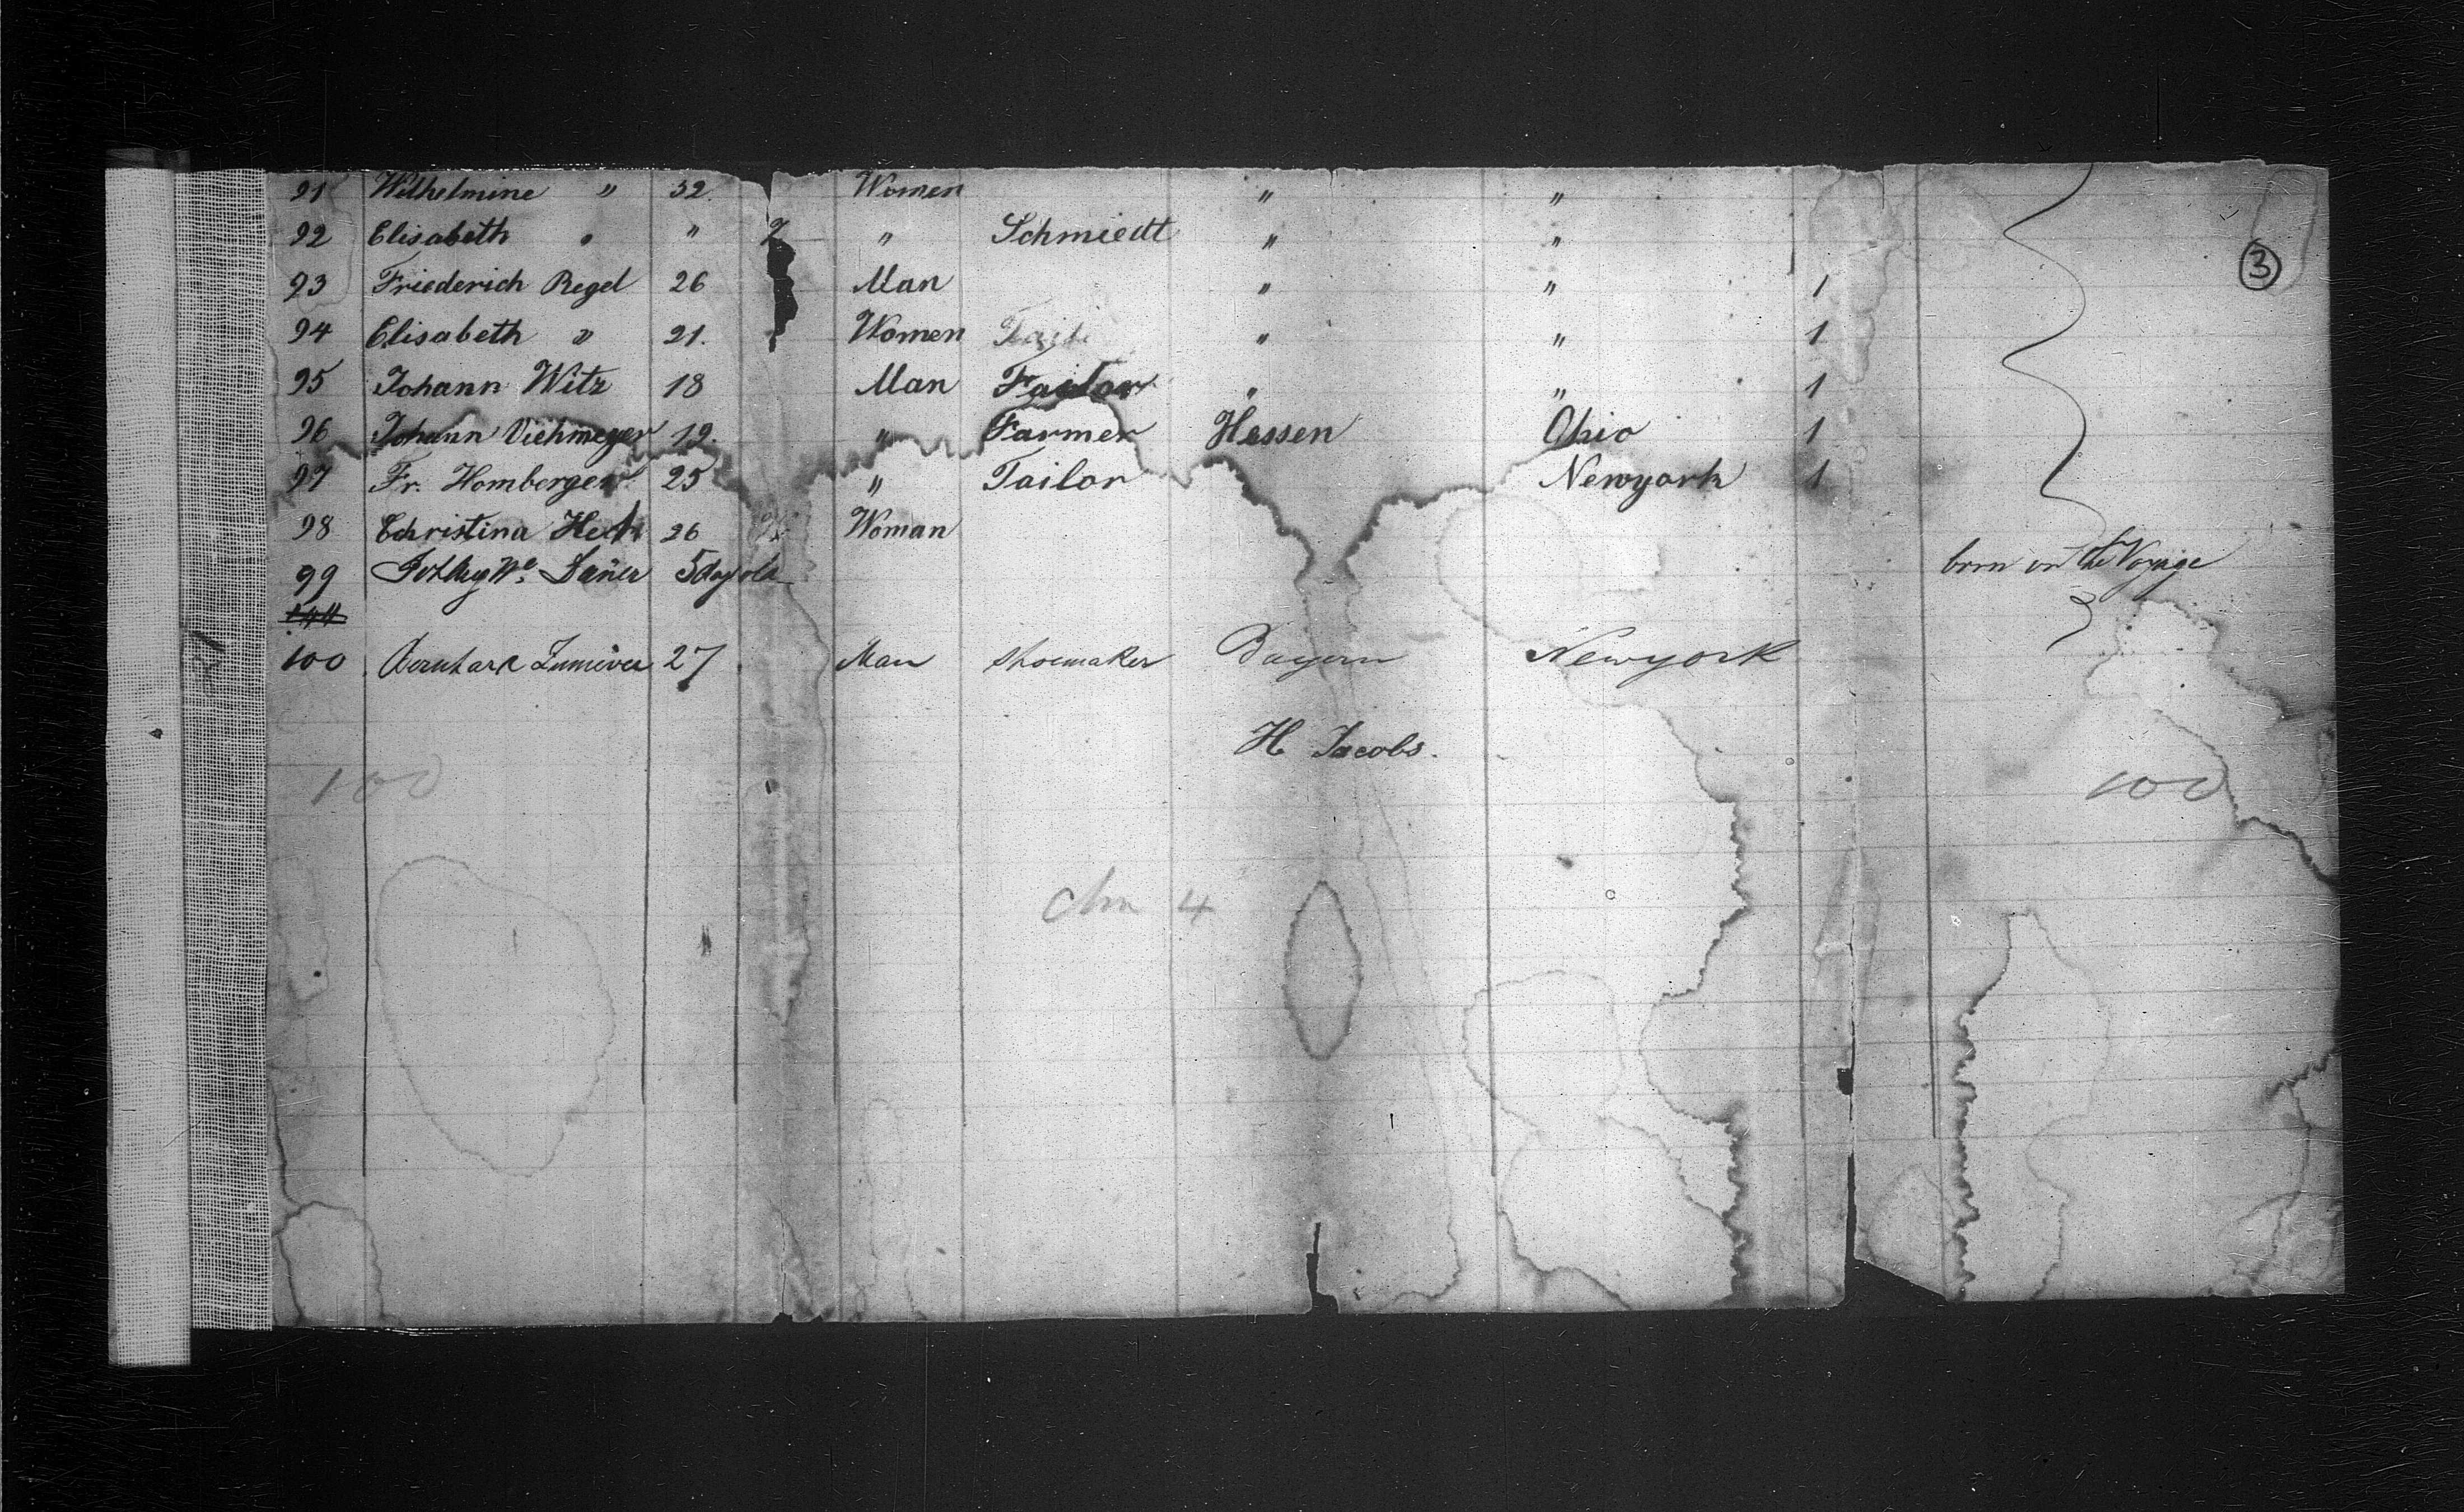 91 Wilhelmine " 32. Women " "
92 Elisabeth " " 2 " Schmiedt " "
93 Friederich Regel 26 Man " " 1
94 Elisabeth " 21. Women " " 1
95 Johann Witz 18 Man Tailor " " 1
96 Johann Viehmeyer 19. " Farmer Hessen Ohio 1
97 Fr. Homberger 25 " Tailor Newyork 1
98 Christina 26 Woman
99 5 days old born on the Voyage
100 Bernhard 27 Man Shoemaker Bayern Newyork
H Jacobs.
100 100
4
3